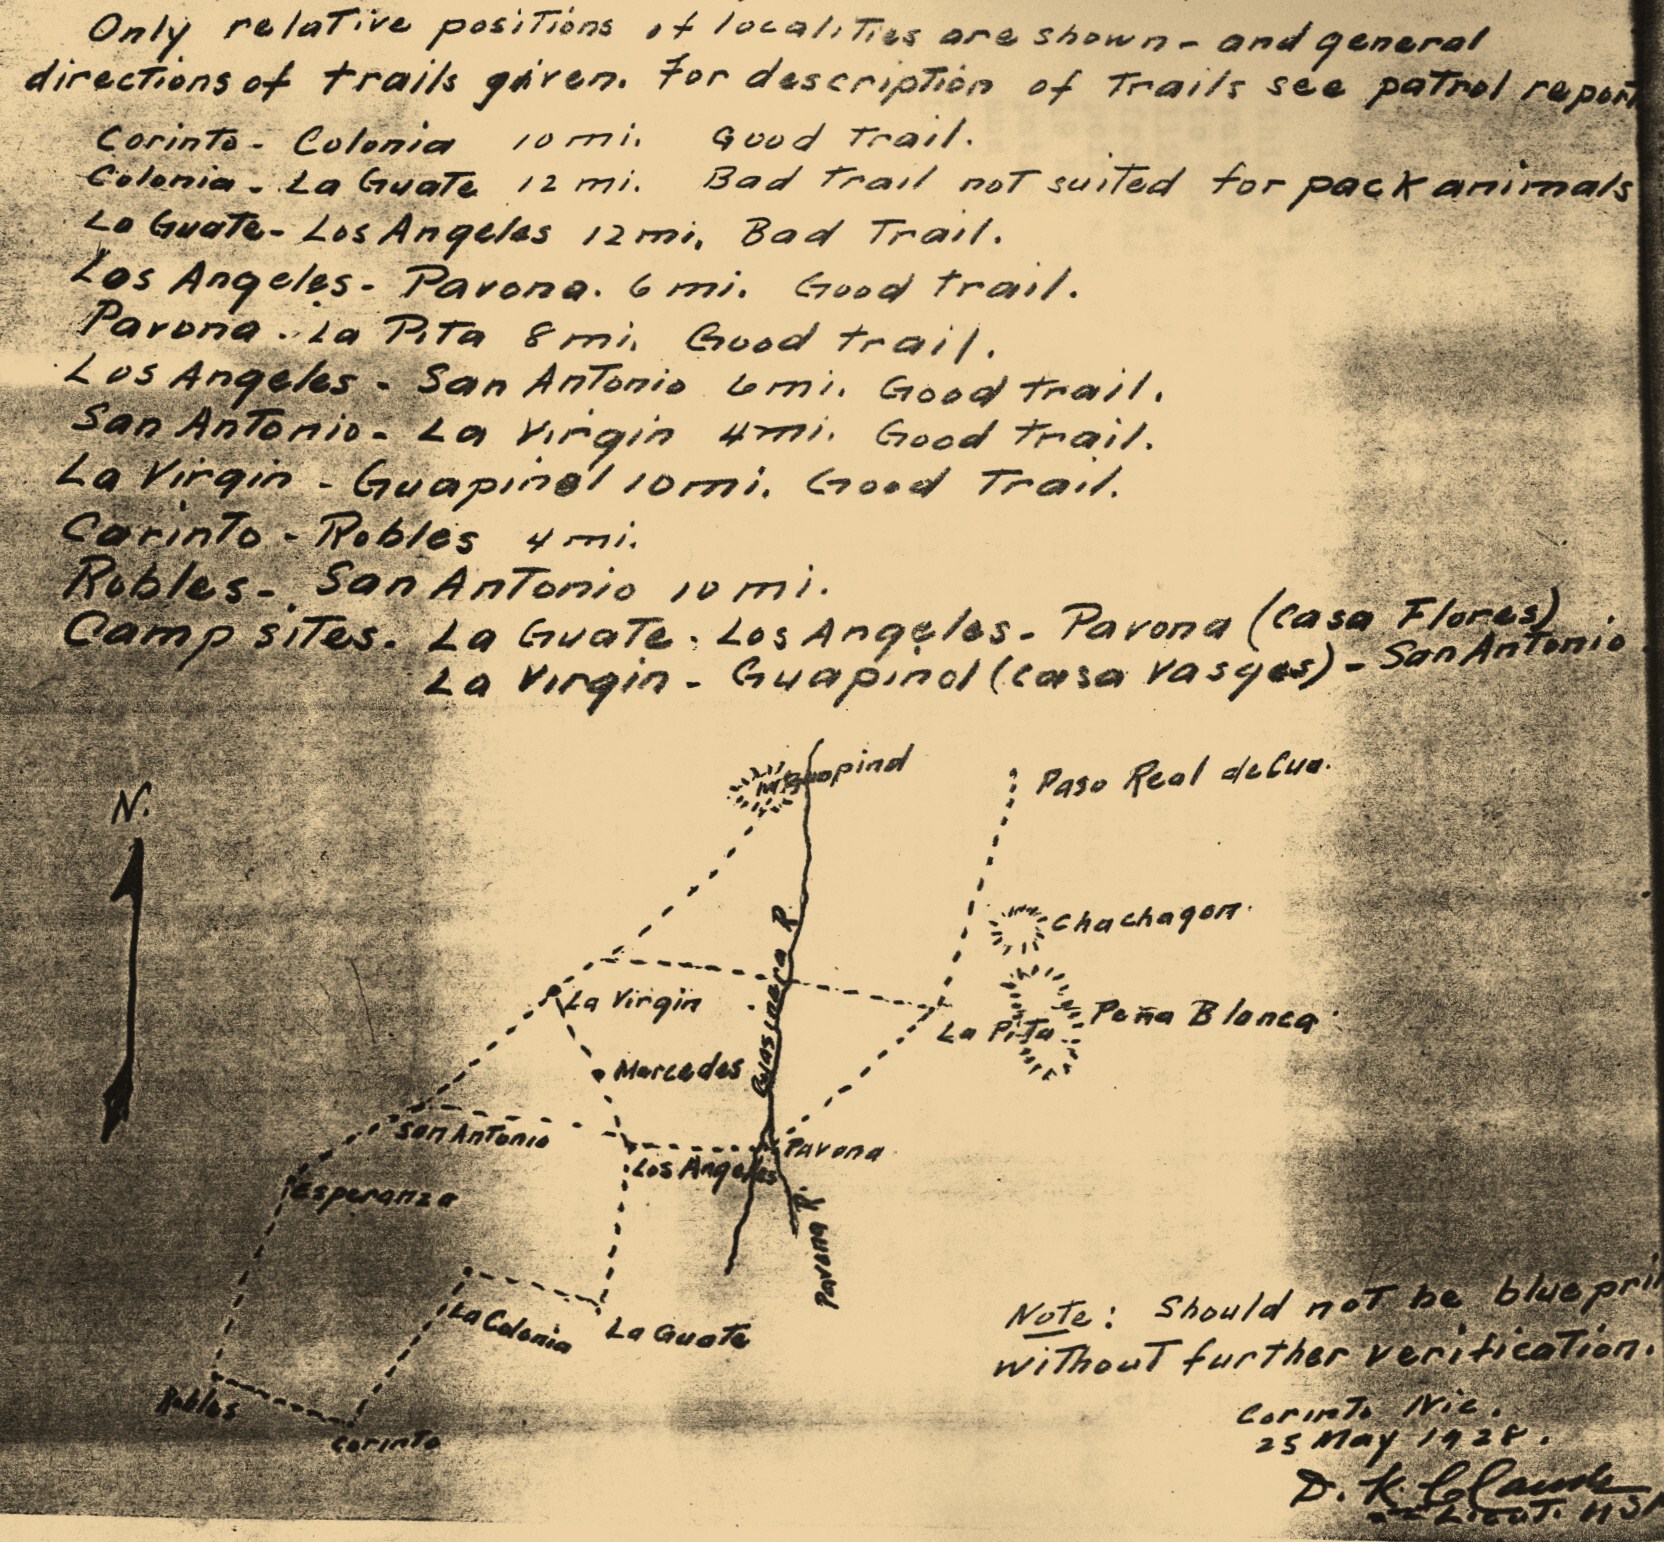 Only relative positions of localities are shown - and general
directions of trails given. For description of trails see patrol report
Corinto - Colonia 10 mi. Good trail.
Colonia - La Guate 12 mi. Bad trail not suited for pack animals
La Guate - Los Angeles 12 mi. Bad Trail.
Los Angeles - Pavona. 6 mi. Good trail.
Pavona - La Pita 8 mi. Good trail.
Los Angeles - San Antonio 6 mi. Good trail.
San Antonio - La Virgin 4 mi. Good trail.
La Virgin - Guapinol 10 mi. Good Trail.
Corinto - Robles 4 mi.
Robles - San Antonio 10 mi.
Camp sites. La Guate - Los Angeles - Pavona (Casa Flores)
La Virgin - Guapinol (casa Vasges) - San Antonio
N.
Guapinol
Paso Real de Cua.
Chachagon.
La Virgin
La Pita
Peña Blanca
R.
Marcedes
San Antonio
Los Angeles
Pavona
Esperanza
Pavona R.
La Colonia
La Guate
Robles
Corinto
Note: Should not be blueprin
without further verification.
Corinto Nic.
25 May 1928.
D. K.
Lieut.